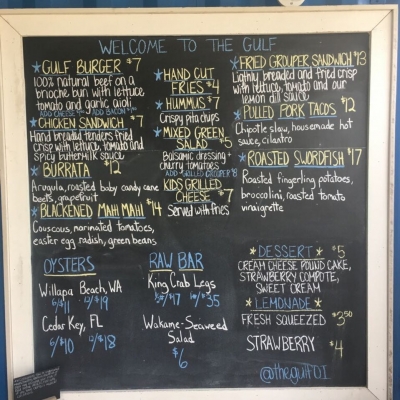 WELCOME TO THE GULF
* GULF BURGER $7
100% natural beef on a
brioche bun with lettuce
tomato and garlic aioli
ADD CHEESE ADD BACON
* CHICKEN SANDWICH $7
Hand breaded tenders fried
crisp with lettuce, tomato and
spicy buttermilk sauce
* BURRATA $12
Arugula, roasted baby candy cane
beets, grapefruit
* BLACKENED MAHI MAHI $14
Couscous, marinated tomatoes,
easter egg radish, green beans
* HAND CUT
FRIES $4
* HUMMUS $7
Crispy pita chips
* MIXED GREEN
SALAD $5
Balsamic dressing +
cherry tomatoes
ADD GRILLED GROUPER $8
KIDS GRILLED
CHEESE $7
Served with fries
* FRIED GROUPER SANDWICH $13
Lightly breaded and fried crisp
with lettuce, tomato and our
lemon dill sauce
* PULLED PORK TACOS $12
Chipotle slaw, housemade hot
sauce, cilantro
* ROASTED SWORDFISH $17
Roasted fingerling potatoes,
broccolini, roasted tomato
vinaigrette
OYSTERS
Willapa Beach, WA
6/$11 12/$19
Cedar Key, FL
6/$10 12/$18
RAW BAR
King Crab Legs
1/2 lb/$17 1 lb/$35
Wakame-Seaweed
Salad
$6
* DESSERT * $5
CREAM CHEESE POUND CAKE,
STRAWBERRY COMPOTE,
SWEET CREAM
* LEMONADE *
FRESH SQUEEZED $3.50
STRAWBERRY $4
@thegulfOI